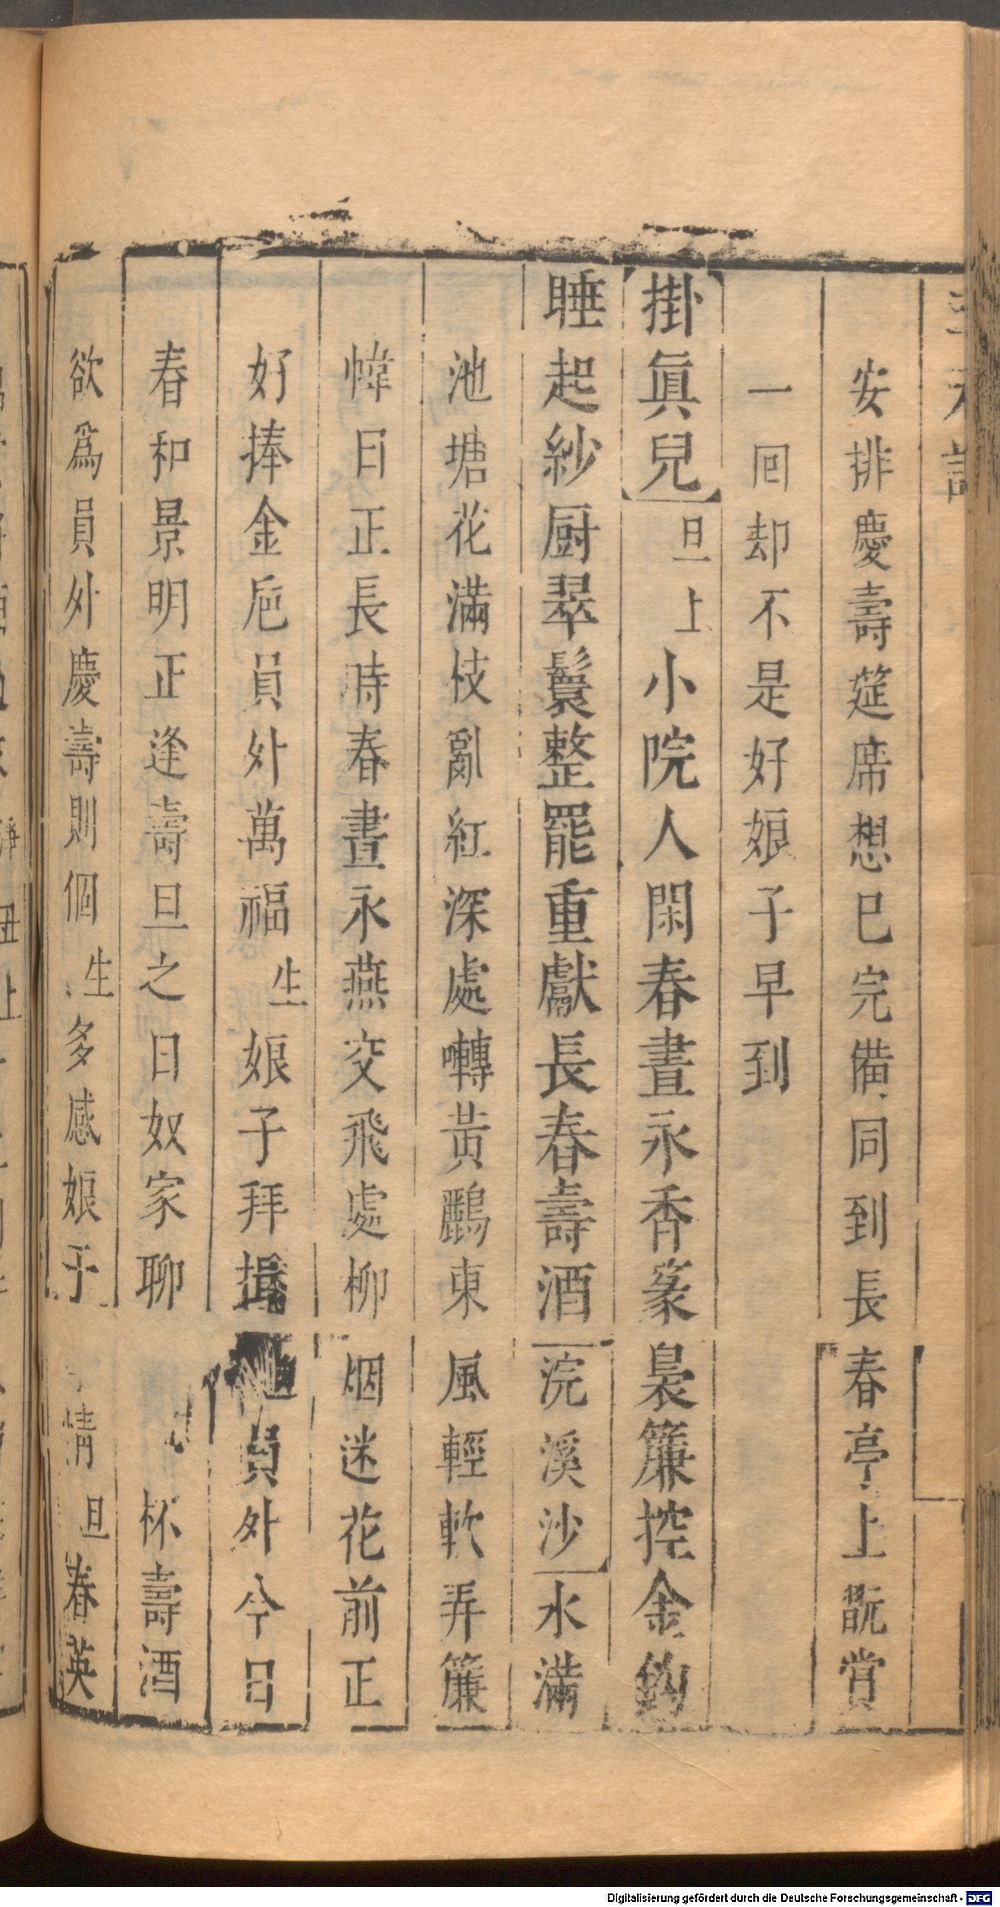 安排慶壽筵席想已完備同到長春亭上翫賞
一囘却不是好娘子早到
掛眞兒 旦上 小院人閑春晝永香篆裊簾控金鈎
睡起紗厨翠鬟整罷重獻長春壽酒 浣溪沙 水滿
池塘花滿枝亂紅深處囀黃鸝東風輕軟弄簾
幃日正長時春晝永燕交飛處柳烟迷花前正
好捧金巵員外萬福 生 娘子拜揖 員外今日
春和景明正逢壽旦之日奴家聊 杯壽酒
欲爲員外慶壽則個 生 多感娘子 情 旦 春英
Digitalisierung gefördert durch die Deutsche Forschungsgemeinschaft - DFG